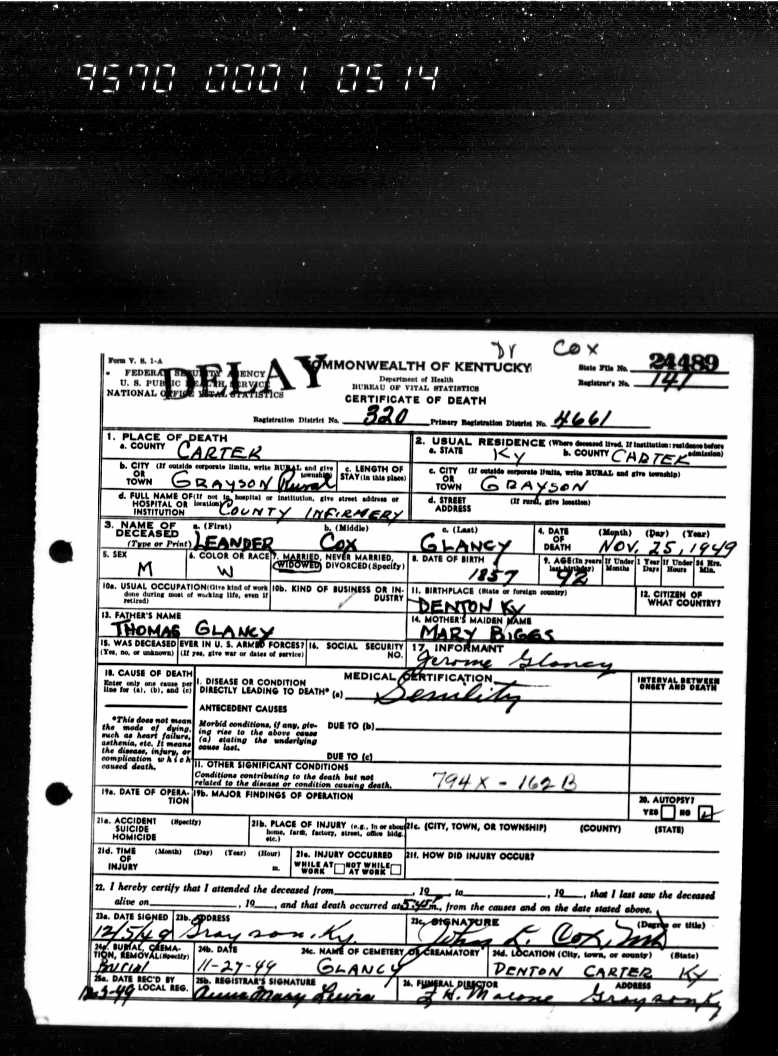 9570 0001 0514
Dr Cox
Form V. S. 1-A
FEDERAL SECURITY AGENCY
U. S. PUBLIC HEALTH SERVICE
NATIONAL OFFICE VITAL STATISTICS
DELAY
COMMONWEALTH OF KENTUCKY
Department of Health
BUREAU OF VITAL STATISTICS
CERTIFICATE OF DEATH
State File No. 24489
Registrar's No. 141
Registration District No. 320 Primary Registration District No. 4661
1. PLACE OF DEATH
a. COUNTY CARTER
2. USUAL RESIDENCE (Where deceased lived. If institution: residence before admission)
a. STATE Ky b. COUNTY CARTER
b. CITY (If outside corporate limits, write RURAL and give township)
OR TOWN GRAYSON Rural
c. LENGTH OF STAY (in this place)
c. CITY (If outside corporate limits, write RURAL and give township)
OR TOWN GRAYSON
d. FULL NAME OF (If not in hospital or institution, give street address or location)
HOSPITAL OR INSTITUTION COUNTY INFIRMERY
d. STREET ADDRESS (If rural, give location)
3. NAME OF DECEASED (Type or Print)
a. (First) b. (Middle) c. (Last)
LEANDER COX GLANCY
4. DATE OF DEATH (Month) (Day) (Year)
NOV. 25, 1949
5. SEX
M
6. COLOR OR RACE
W
7. MARRIED, NEVER MARRIED, WIDOWED, DIVORCED (Specify)
8. DATE OF BIRTH
1857
9. AGE (In years last birthday) If Under 1 Year If Under 24 Hrs.
Months Days Hours Min.
92
10a. USUAL OCCUPATION (Give kind of work done during most of working life, even if retired)
10b. KIND OF BUSINESS OR INDUSTRY
11. BIRTHPLACE (State or foreign country)
DENTON KY
12. CITIZEN OF WHAT COUNTRY?
13. FATHER'S NAME
THOMAS GLANCY
14. MOTHER'S MAIDEN NAME
MARY BIGGS
15. WAS DECEASED EVER IN U. S. ARMED FORCES?
(Yes, no, or unknown) (If yes, give war or dates of service)
16. SOCIAL SECURITY NO.
17. INFORMANT
Jerome Glancy
18. CAUSE OF DEATH
Enter only one cause per line for (a), (b), and (c)
MEDICAL CERTIFICATION
INTERVAL BETWEEN ONSET AND DEATH
I. DISEASE OR CONDITION
DIRECTLY LEADING TO DEATH* (a) Senility
*This does not mean the mode of dying, such as heart failure, asthenia, etc. It means the disease, injury, or complication which caused death.
ANTECEDENT CAUSES
Morbid conditions, if any, giving rise to the above cause (a) stating the underlying cause last.
DUE TO (b)
DUE TO (c)
II. OTHER SIGNIFICANT CONDITIONS
Conditions contributing to the death but not related to the disease or condition causing death.
794X - 162B
19a. DATE OF OPERATION
19b. MAJOR FINDINGS OF OPERATION
20. AUTOPSY?
YES NO
21a. ACCIDENT (Specify)
SUICIDE
HOMICIDE
21b. PLACE OF INJURY (e.g., in or about home, farm, factory, street, office bldg., etc.)
21c. (CITY, TOWN, OR TOWNSHIP) (COUNTY) (STATE)
21d. TIME OF INJURY (Month) (Day) (Year) (Hour) m.
21e. INJURY OCCURRED
WHILE AT WORK NOT WHILE AT WORK
21f. HOW DID INJURY OCCUR?
22. I hereby certify that I attended the deceased from , 19 , to , 19 , that I last saw the deceased
alive on , 19 , and that death occurred at 5:45 m., from the causes and on the date stated above.
23a. DATE SIGNED
12/5/49
23b. ADDRESS
Grayson, Ky.
23c. SIGNATURE (Degree or title)
John L. Cox, MD
24a. BURIAL, CREMATION, REMOVAL (Specify)
Burial
24b. DATE
11-27-49
24c. NAME OF CEMETERY OR CREAMATORY
GLANCY
24d. LOCATION (City, town, or county) (State)
DENTON CARTER KY
25a. DATE REC'D BY LOCAL REG.
25b. REGISTRAR'S SIGNATURE
Anna Mary Lewis
26. FUNERAL DIRECTOR ADDRESS
Malone Grayson Ky